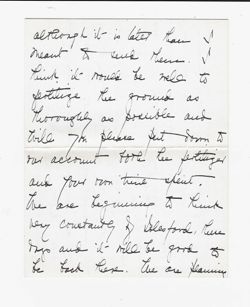 although it is later than I
meant to send them. I
think it would be well to
fertilize the ground as
thoroughly as possible and
will you please put down to
our account both the fertilizer
and your own time spent.
We are beginning to think
very constantly of Islesford these
days and it will be good to
be back there. We are planning